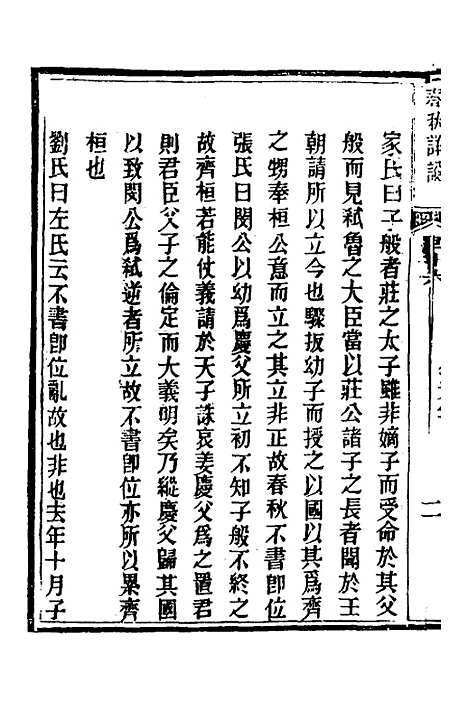 春秋詳說
家氏曰子般者莊之太子雖非嫡子而受命於其父
般而見弒魯之大臣當以莊公諸子之長者聞於王
朝請所以立今也驟扳幼子而授之以國以其爲齊
之甥奉桓公意而立之其立非正故春秋不書卽位
張氏曰閔公以幼爲慶父所立初不知子般不終之
故齊桓若能仗義請於天子誅哀姜慶父爲之置君
則君臣父子之倫定而大義明矣乃縱慶父歸其國
以致閔公爲弒逆者所立故不書卽位亦所以累齊
桓也
劉氏曰左氏云不書卽位亂故也非也去年十月子